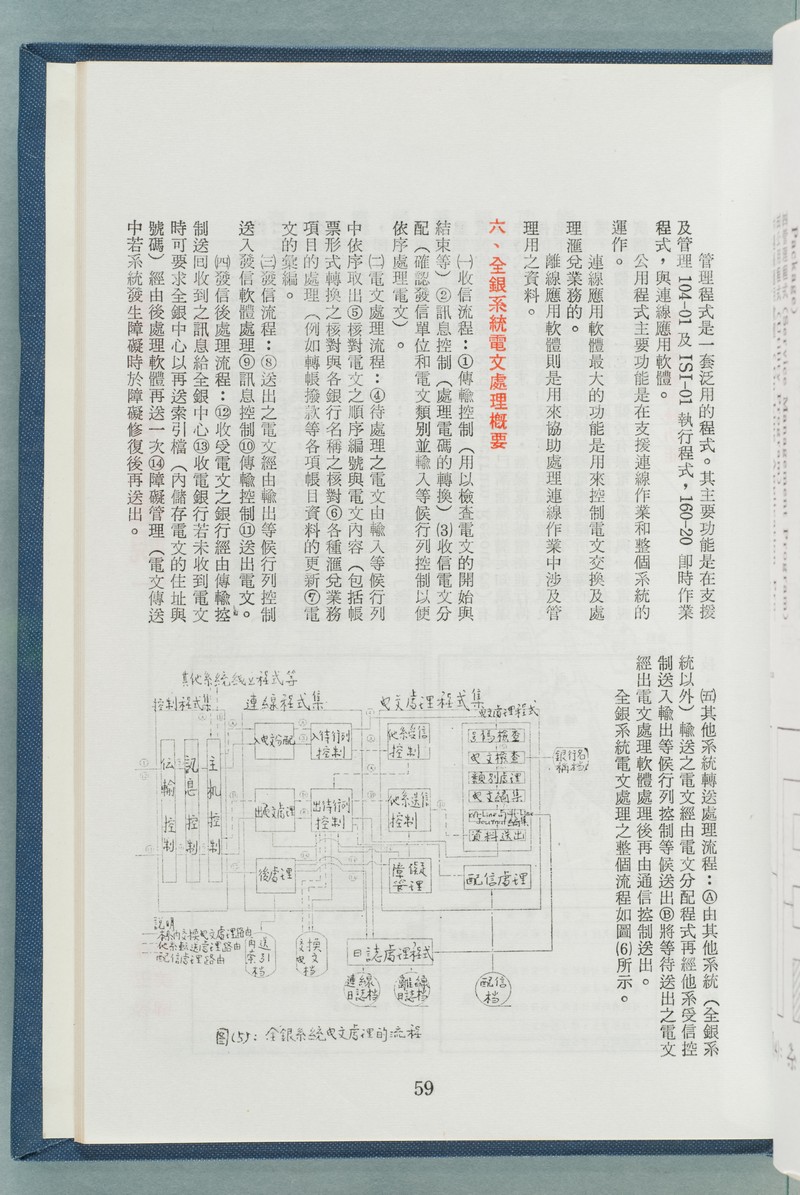 管理程式是一套泛用的程式。其主要功能是在支援
及管理 104-01 及 ISI-01 執行程式，160-20 即時作業
程式，與連線應用軟體。
公用程式主要功能是在支援連線作業和整個系統的
運作。
連線應用軟體最大的功能是用來控制電文交換及處
理滙兌業務的。
離線應用軟體則是用來協助處理連線作業中涉及管
理用之資料。
六、全銀系統電文處理概要
㈠收信流程：①傳輸控制（用以檢查電文的開始與
結束等）②訊息控制（處理電碼的轉換）⑶收信電文分
配（確認發信單位和電文類別並輸入等候行列控制以便
依序處理電文）。
㈡電文處理流程：④待處理之電文由輸入等候行列
中依序取出⑤核對電文之順序編號與電文內容（包括帳
票形式轉換之核對與各銀行名稱之核對⑥各種滙兌業務
項目的處理（例如轉帳撥款等各項帳目資料的更新⑦電
文的彙編。
㈢發信流程：⑧送出之電文經由輸出等候行列控制
送入發信軟體處理⑨訊息控制⑩傳輸控制⑪送出電文。
㈣發信後處理流程：⑫收受電文之銀行經由傳輸控
制送回收到之訊息給全銀中心⑬收電銀行若未收到電文
時可要求全銀中心以再送索引檔（內儲存電文的住址與
號碼）經由後處理軟體再送一次⑭障礙管理（電文傳送
中若系統發生障礙時於障礙修復後再送出。
㈤其他系統轉送處理流程：Ⓐ由其他系統（全銀系
統以外）輸送之電文經由電文分配程式再經他系受信控
制送入輸出等候行列控制等候送出Ⓑ將等待送出之電文
經出電文處理軟體處理後再由通信控制送出。
全銀系統電文處理之整個流程如圖⑹所示。
其他系統线上程式等
控制程式集
連線程式集
电文處理程式集
电文處理程式
传輸控制
訊息控制
主机控制
入电文分配
入待行列
控制
他系受信
控制
出电文處理
出待行列
控制
他系送信
控制
後處理
障礙
管理
电文檢查
類別處理
电文編集
資料送出
銀行名
稱档
配信處理
說明
配信處理路由
再送
索引
档
交換
电文
档
日誌處理程式
連線
日誌档
離線
日誌档
配信
档
图(5)：全銀系統电文處理的流程
59